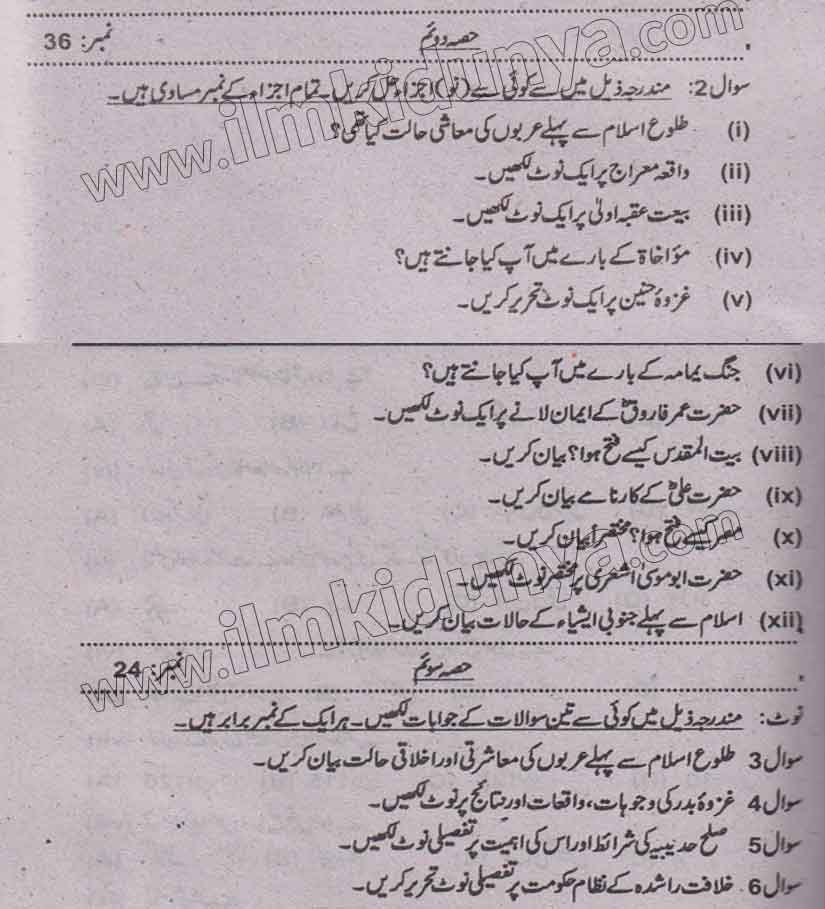 حصہ دوئم نمبر: 36
سوال 2: مندرجہ ذیل میں سے کوئی سے (نو) اجزاء حل کریں۔ تمام اجزاء کے نمبر مساوی ہیں۔
(i) طلوع اسلام سے پہلے عربوں کی معاشی حالت کیا تھی؟
(ii) واقعہ معراج پر ایک نوٹ لکھیں۔
(iii) بیعت عقبہ اولیٰ پر ایک نوٹ لکھیں۔
(iv) مؤاخاۃ کے بارے میں آپ کیا جانتے ہیں؟
(v) غزوۂ حنین پر ایک نوٹ تحریر کریں۔
(vi) جنگ یمامہ کے بارے میں آپ کیا جانتے ہیں؟
(vii) حضرت عمر فاروقؓ کے ایمان لانے پر ایک نوٹ لکھیں۔
(viii) بیت المقدس کیسے فتح ہوا؟ بیان کریں۔
(ix) حضرت علیؓ کے کارنامے بیان کریں۔
(x) مصر کیسے فتح ہوا؟ مختصراً بیان کریں۔
(xi) حضرت ابو موسیٰ اشعریؓ پر مختصر نوٹ لکھیں۔
(xii) اسلام سے پہلے جنوبی ایشیاء کے حالات بیان کریں۔
حصہ سوئم نمبر: 24
نوٹ: مندرجہ ذیل میں کوئی سے تین سوالات کے جوابات لکھیں۔ ہر ایک کے نمبر برابر ہیں۔
سوال 3 طلوع اسلام سے پہلے عربوں کی معاشرتی اور اخلاقی حالت بیان کریں۔
سوال 4 غزوۂ بدر کی وجوہات، واقعات اور نتائج پر نوٹ لکھیں۔
سوال 5 صلح حدیبیہ کی شرائط اور اس کی اہمیت پر تفصیلی نوٹ لکھیں۔
سوال 6 خلافت راشدہ کے نظام حکومت پر تفصیلی نوٹ تحریر کریں۔
www.ilmkidunya.com
www.ilmkidunya.com